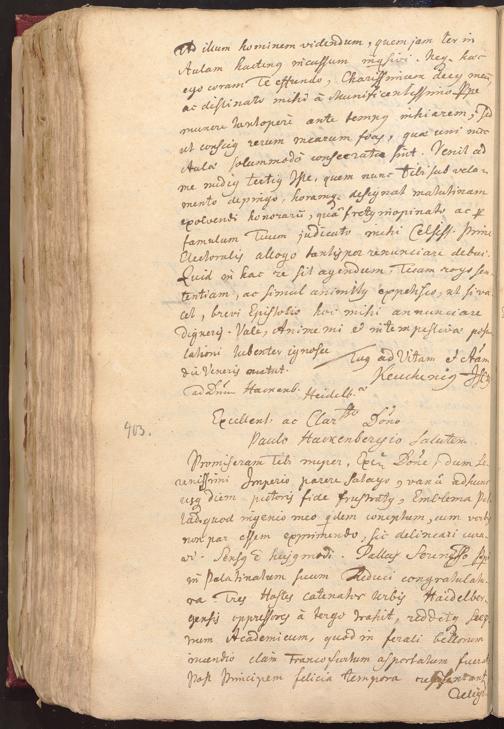 Ad illum hominem videndum, quem jam ter in
Aulam hactenq incassum Neq hac
ego coram Te effundo, Charissimum decq meu,
ac destinato mihi à Munificentissimo
munere tantoperè ante tempq inhierem; Sed
ut consciq rerum mearum fias, quæ uni nac
Aulæ solummodò consecratæ sint. Venit ad
me nudiq tertiq Ipse, quem nunc Tibi sub vela-
mento depingo, horamq designat matutinam
expolvendi honorarii, quâ fretq inopinatò ac
famulum Tuum judicato mihi Celsiss. Princ
Electoralis allogo tantisper renunciare debui.
Quid in hac re sit agendum Tuam rogo sen
tentiam, ac simul expetisso, ut si va
cet, brevi Epistolio hoc mihi annunciare
digneris. Vale, Anime mi et intempestivæ postu
lationi lubenter ignosce Tuq ad Vitam et Aram
diè Veneris Keuchenig
ad Dnum Hackenb. Heidelb.
Excellent. ac Clar Dno
903.
Paulo Hackenbergio Salutem
Promiseram Tibi nuper, Dne, dum Se
renissimi Imperio parere satago, vanâ adhunc
usq diem pictoris fide frustratq, Emblema Pal
ladis, quod ingenio meo qdem conceptum, cum verbis
non par essem exprimendo, sic delineari cura
vi. Sensq è hujqmodi. Pallas
in Palatinatum suum Reduci congratulatu
ra Tres Hostes catenatos Urbis Haidelber
gensis oppressores à tergo trahit, redditq Scep
trum Academicum, quod in ferali bellorum
incendio clam Francofurtum asportatum fuerat
Post Principem felicia tempora
Religi